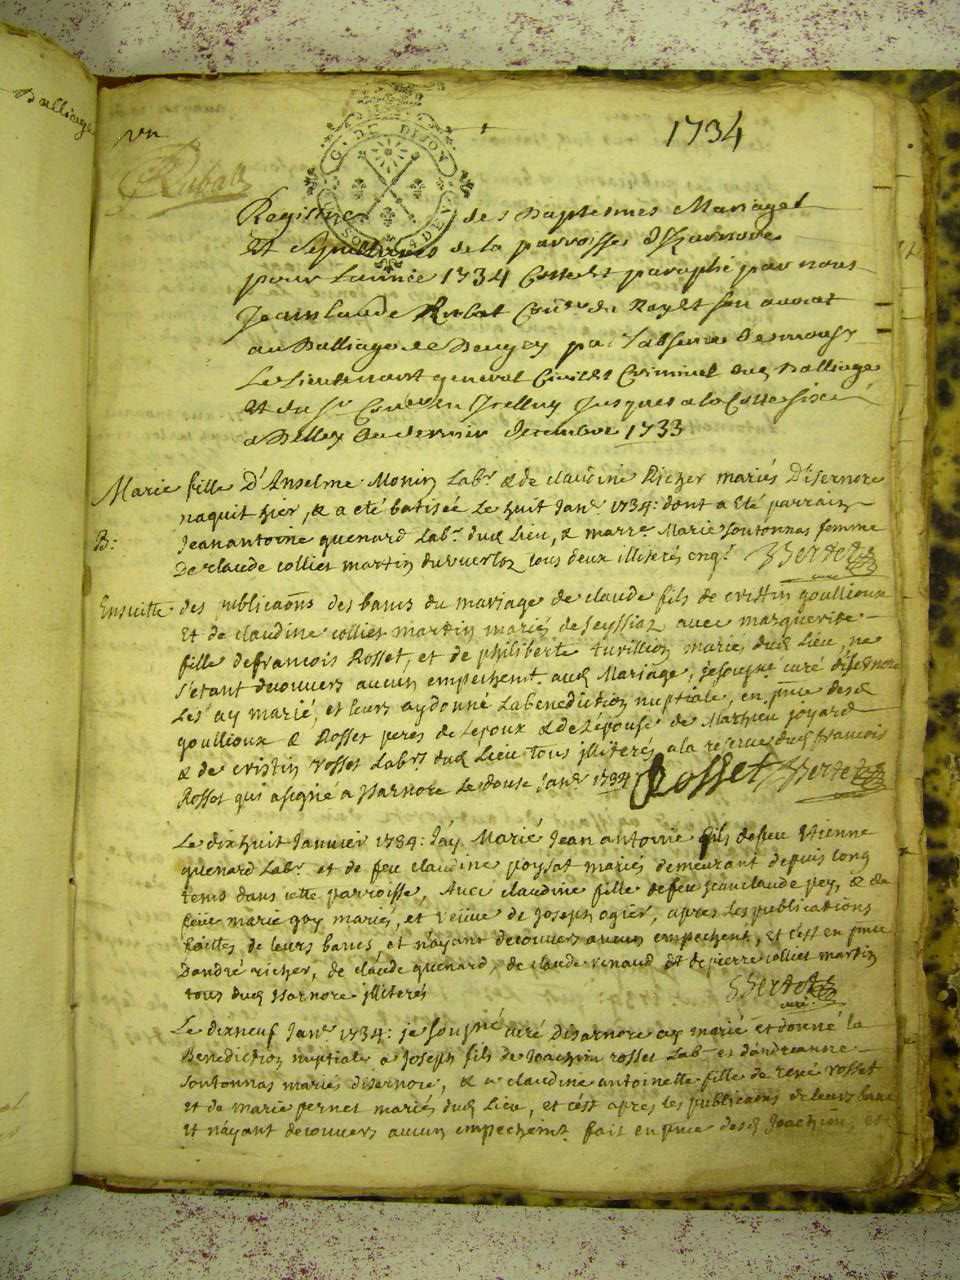 Balliage
un
1734
Rubat
G. DE DIJON
Registre des Baptesmes Mariages
Et Sepultures de la parroisse d'Isarnore
pour l'année 1734 Cotté et paraphé par nous
Jean Claude Rubat Con.er du Roy et son avocat
au Balliage de Beugey par l'absence de mons.r
Le Lieutenant general Civil et Criminel aud. Balliage
Et du S.r jusques a la Cotte
a Belley Ce dernier decembre 1733
Marie fille D'Anselme Monin Lab.r & de claudine Richer mariés D'isernore
naquit hier, & a eté batisée Le huit Janr. 1734: dont a Eté parrain
B: Jean antoine guenard Lab.r dud. Lieu, & marr.e Marie Soutonnas femme
De claude colliet martin tous deux illiterés
Ensuitte des publicaons des bancs du mariage de claude fils de cristin goullioux
Et de claudine colliet martin mariés de Seyssiat avec marguerite
fille de francois Rosset, et de philiberte turillion mariés dud. Lieu, ne
s'etant decouvers aucun empechem.t aud. Mariage, je soupné curé d'isernore
Les ay marié, et leurs ay donné La benediction nuptiale, en pnce desd.
goullioux & Rosset peres de Lepoux & de L'epouse de Mathieu joyard
& de cristin rosset Lab.rs dud. Lieu tous jlliterés a la reserve dud. francois
Rosset qui a signé a Isarnore Le douse Janr. 1734 Rosset
Le dix huit Janvier 1734: J'ay Marié Jean antoine fils de feu Etienne
guenard Lab.r et de feu claudine poysat mariés demeurant depuis long
tems dans cette parroisse, Avec claudine fille de feu jean claude pey, & de
feüe marie goy mariés, et veüve de Joseph ogier, apres Les publications
faittes de leurs bancs, et n'ayant decouvers aucun empechent, et c'est en pnce
D'andré richer, de claude guenard, de claude renaud et de pierre colliet martin
tous dud. Isarnore jlliterés
curé.
Le dixneuf Janr. 1734: je soupné curé D'isarnore ay marié et donné la
Benediction nuptiale a Joseph fils de Joachim rosset Lab.r et d'andreanne
Soutonnas mariés d'isernore, & a claudine antoinette fille de rené rosset
et de marie pernet mariés dud. Lieu, et c'est apres les publicaons de leurs bancs
Et n'ayant decouvers aucun empechemt. fait en pnce desd. Joachim, et